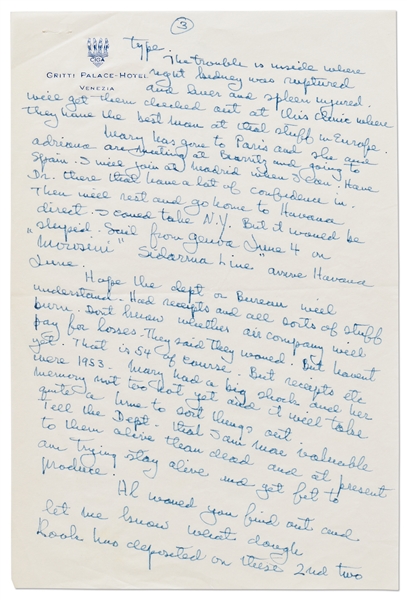 ③
type.
CIGA
GRITTI PALACE-HOTEL
VENEZIA
The trouble is inside where
right kidney was ruptured
and liver and spleen injured.
We'll get them checked out at this clinic where
they have the best man at that stuff in Europe.
Mary has gone to Paris and she and
adriana are meeting at Biarritz and going to
Spain. I will join at madrid when I can. Have
Dr. there that have a lot of confidence in.
Then will rest and go home to Havana
direct. I could take N.Y. But it would be
stupid. Sail from genoa June 4 on
"Morosini" Sidarma Line" arrive Havana
June.
Hope the dept or Bureau will
understand. Had receipts and all sorts of stuff
burn. Dont know whether air company will
pay for losses. They said they would. But havent
yet. That is 54 of course. But receipts etc
were 1953. Mary had a big shock and her
memory not too hot yet and it will take
quite a time to sort things out.
Tell the Dept. that I am more valuable
to them alive than dead and at present
am trying stay alive and get fit to
produce.
Al would you find out and
let me know what dough
Rook has deposited on these 2nd two